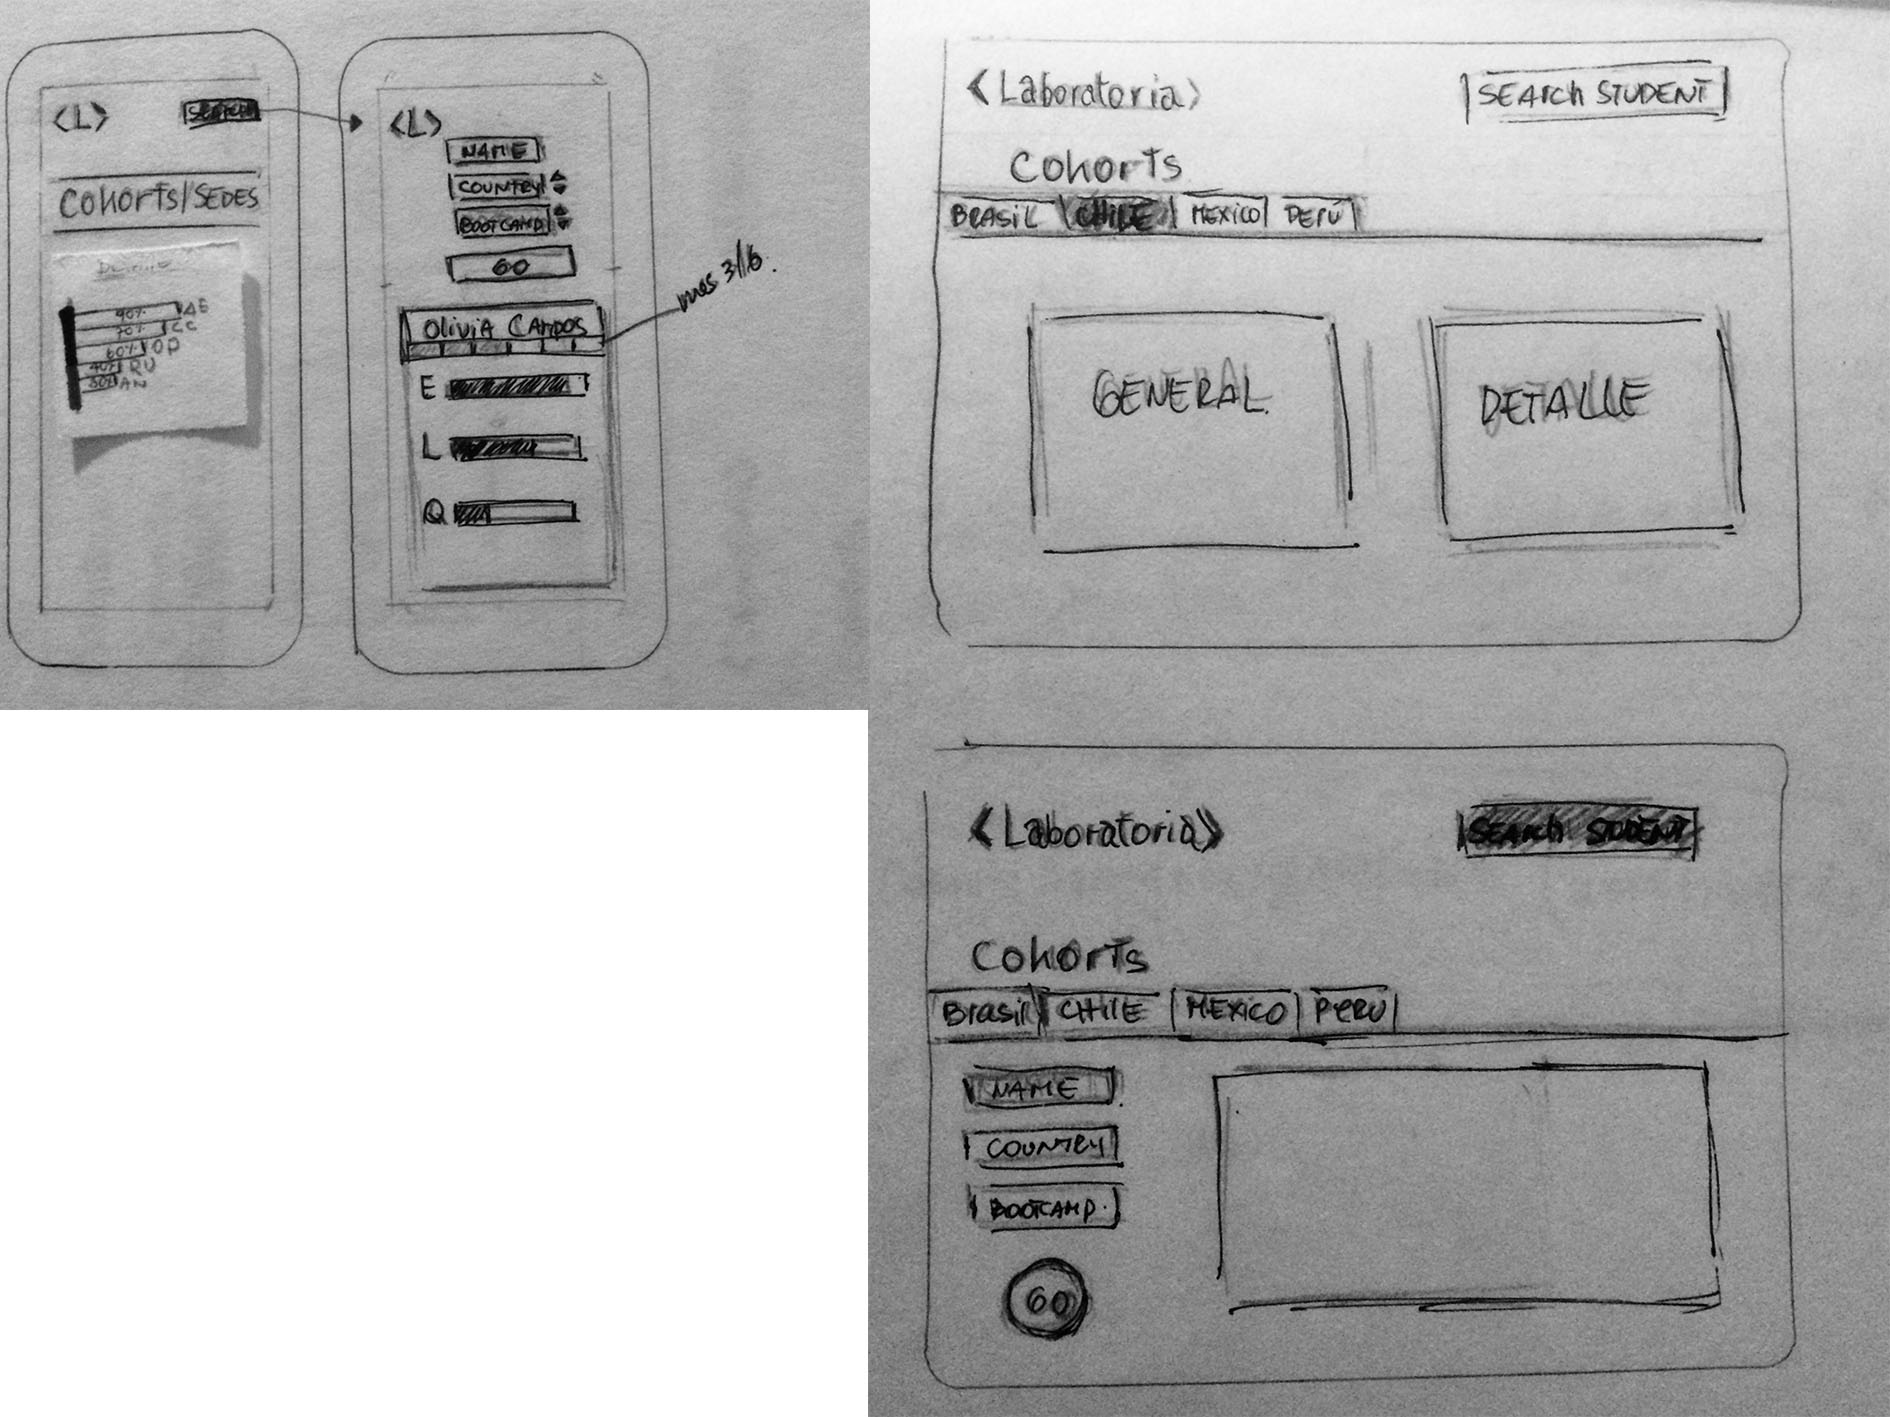 <L> SEARCH
Cohorts/SEDES
90%
70% CC
60% OP
40% RU
30% AN
<L>
NAME
COUNTRY
BOOTCAMP
GO
mes 3/6.
Olivia CAMPOS
E
L
Q
<Laboratoria> SEARCH STUDENT
Cohorts
BRASIL CHILE MEXICO PERÚ
GENERAL DETALLE
<Laboratoria> SEARCH STUDENT
Cohorts
Brasil CHILE MEXICO PERU
NAME
COUNTRY
BOOTCAMP.
GO